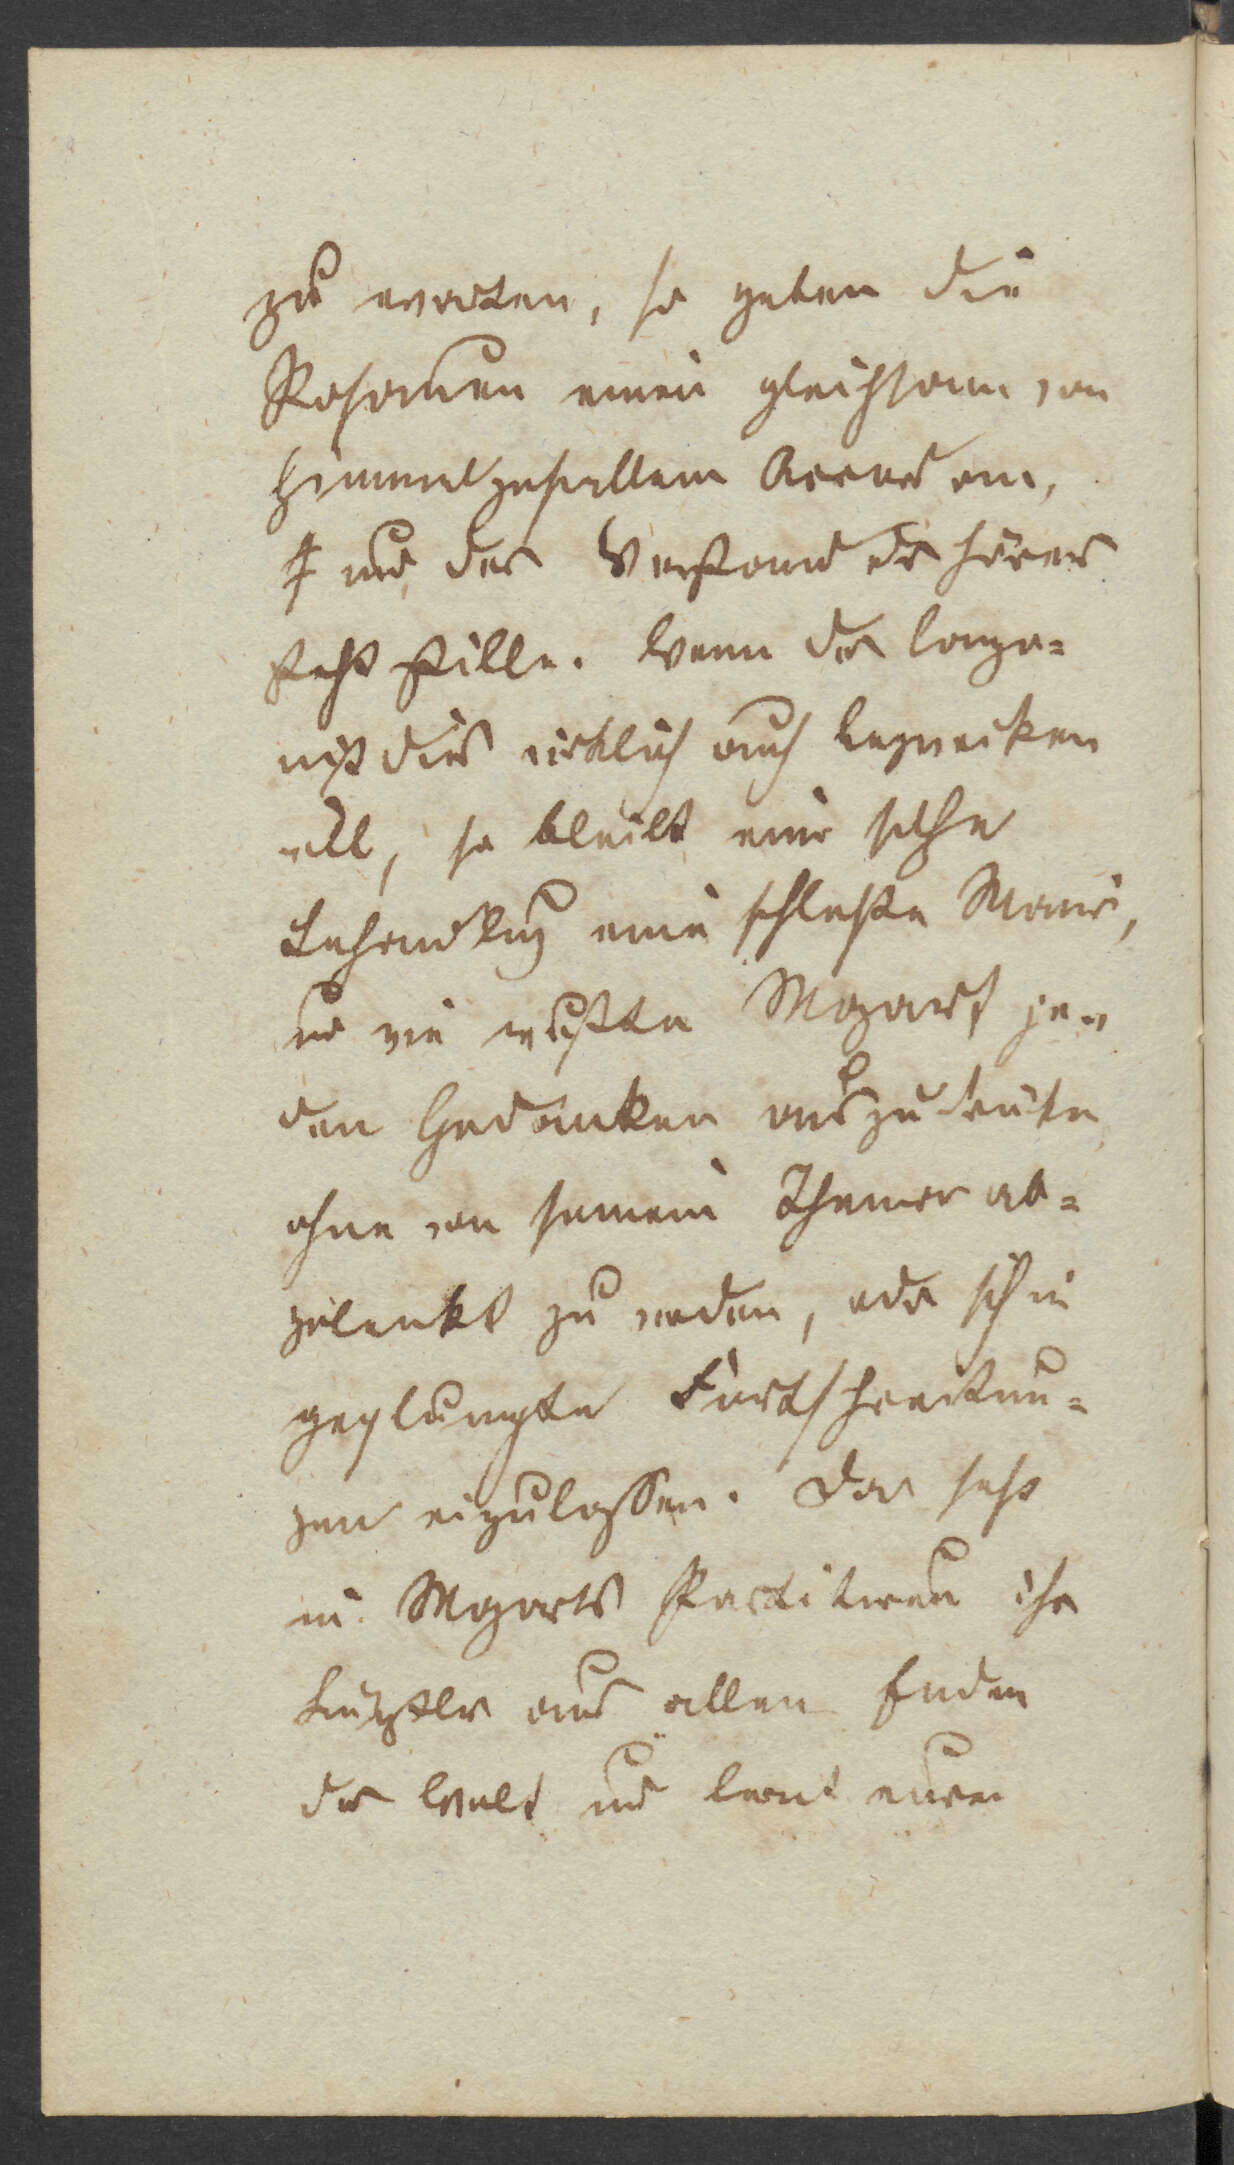 zu erwarten, so geben die
Posaunen einen gleichsam von
Himmel gefallenen Accord an,
und der Verstand des Hörers
steht stille. Wenn der Compo=
nist dies wirklich auch bezwecken
will, so bleibt eine solche
Behandlung eine schlechte Manier,
und wie wußte Mozart je=
den Gedanken auszudrücken
ohne von seinem Thema ab=
gelenkt zu werden, oder sich in
Fortschreitun=
gen einzulassen. Da seht
in Mozarts Partituren ihr
Künstler aus allen Enden
der Welt und lernt euren